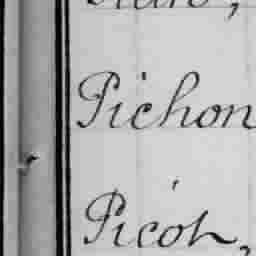 Pichon
Picot,